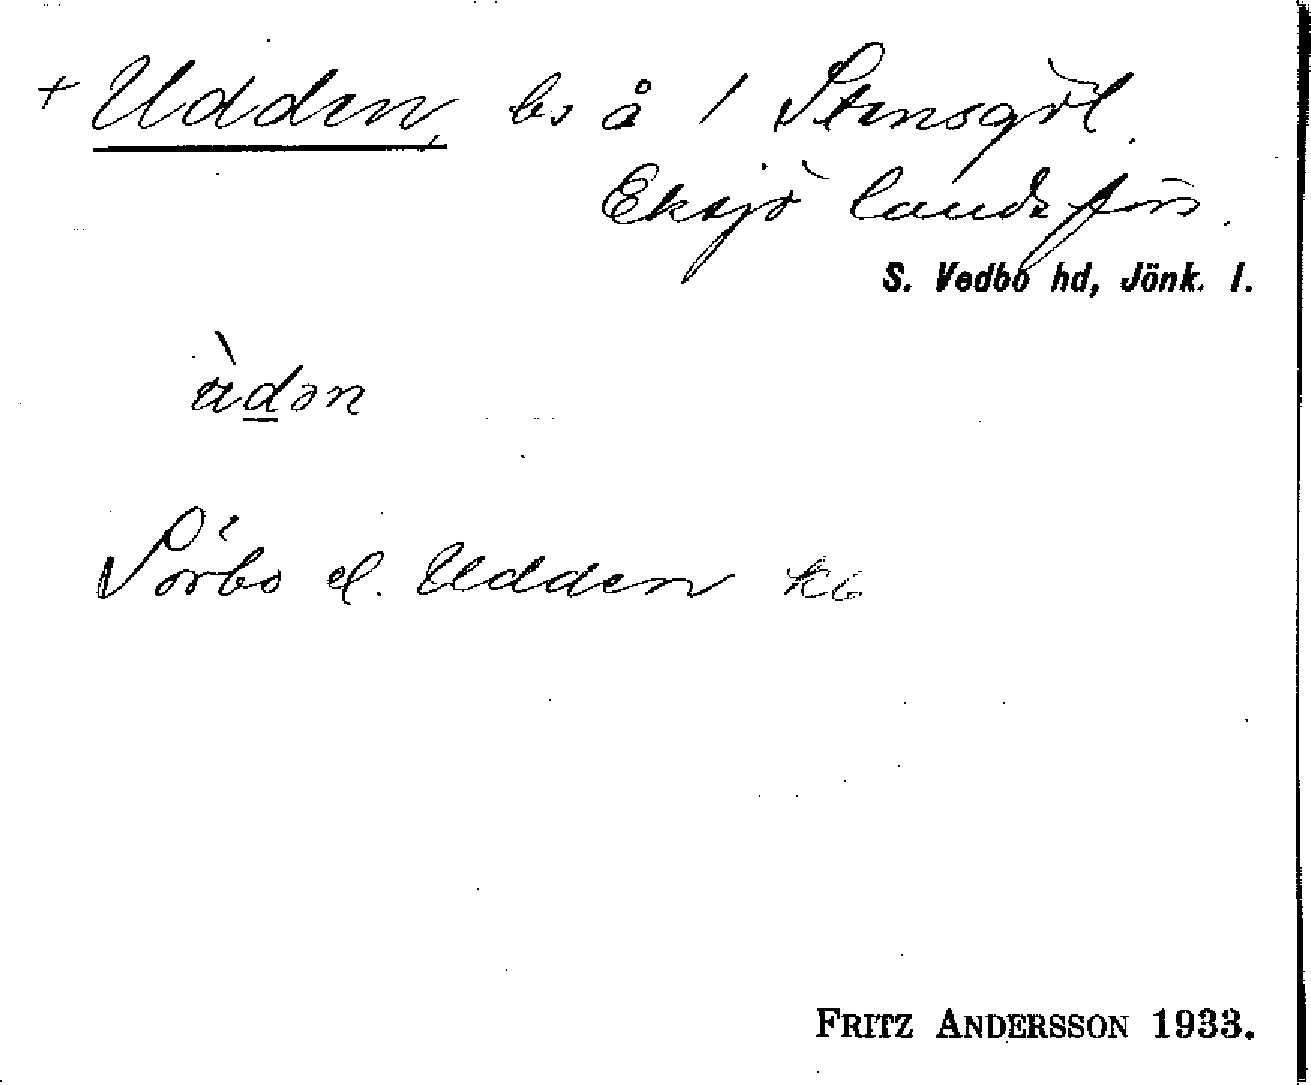 + Udden, bs å 1 Stensgöl.
Eksjö landsförs.
S. Vedbo hd, Jönk. l.
ùdən
Sörbo el. Udden Kb
FRITZ ANDERSSON 1933.